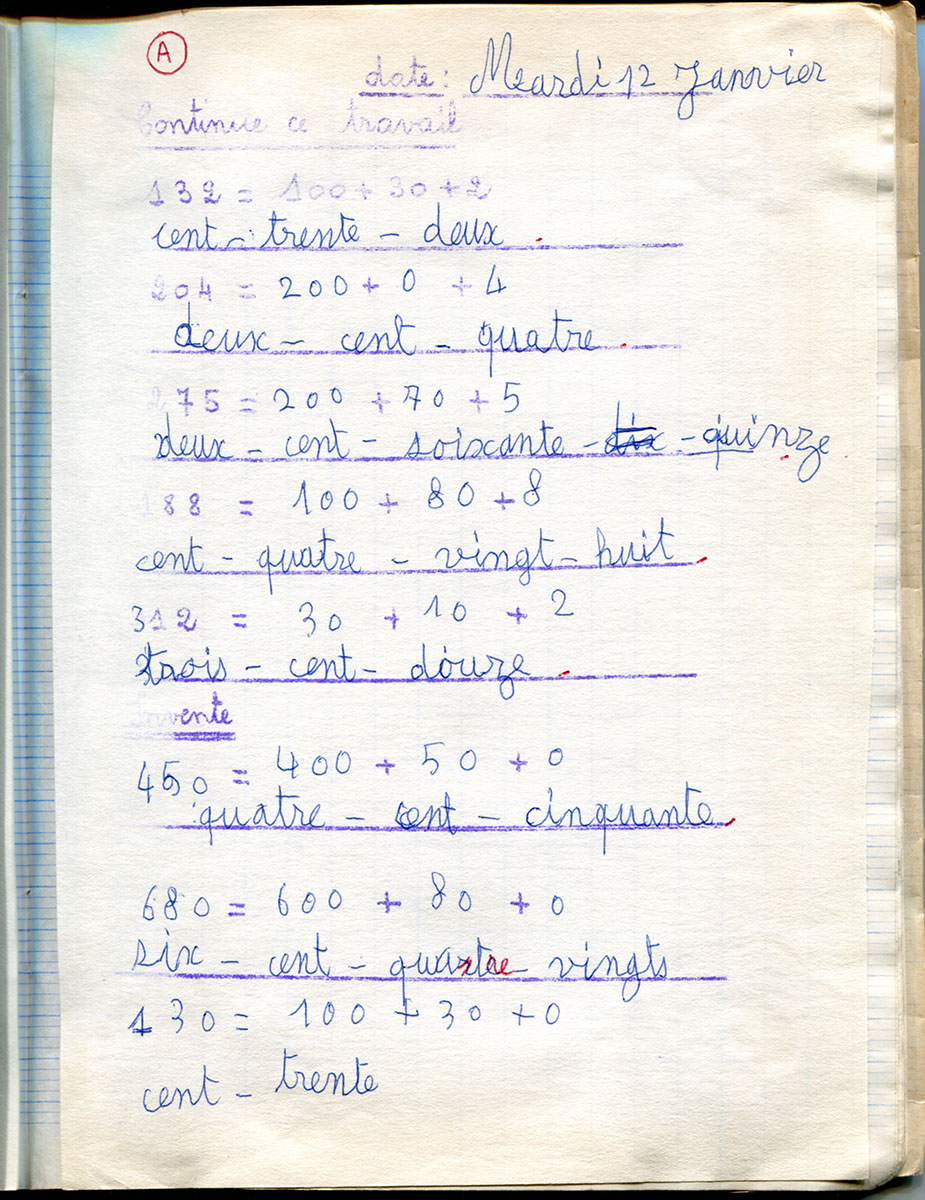 A
date: Meardi 12 Janvier
Continue ce travail
132 = 100 + 30 + 2
cent - trente - deux .
204 = 200 + 0 + 4
deux - cent - quatre .
275 = 200 + 70 + 5
deux - cent - soixante - dix - quinze .
188 = 100 + 80 + 8
cent - quatre - vingt - huit .
312 = 30 + 10 + 2
trois - cent - douze .
invente
450 = 400 + 50 + 0
quatre - cent - cinquante .
680 = 600 + 80 + 0
six - cent - quatre vingts
130 = 100 + 30 + 0
cent - trente